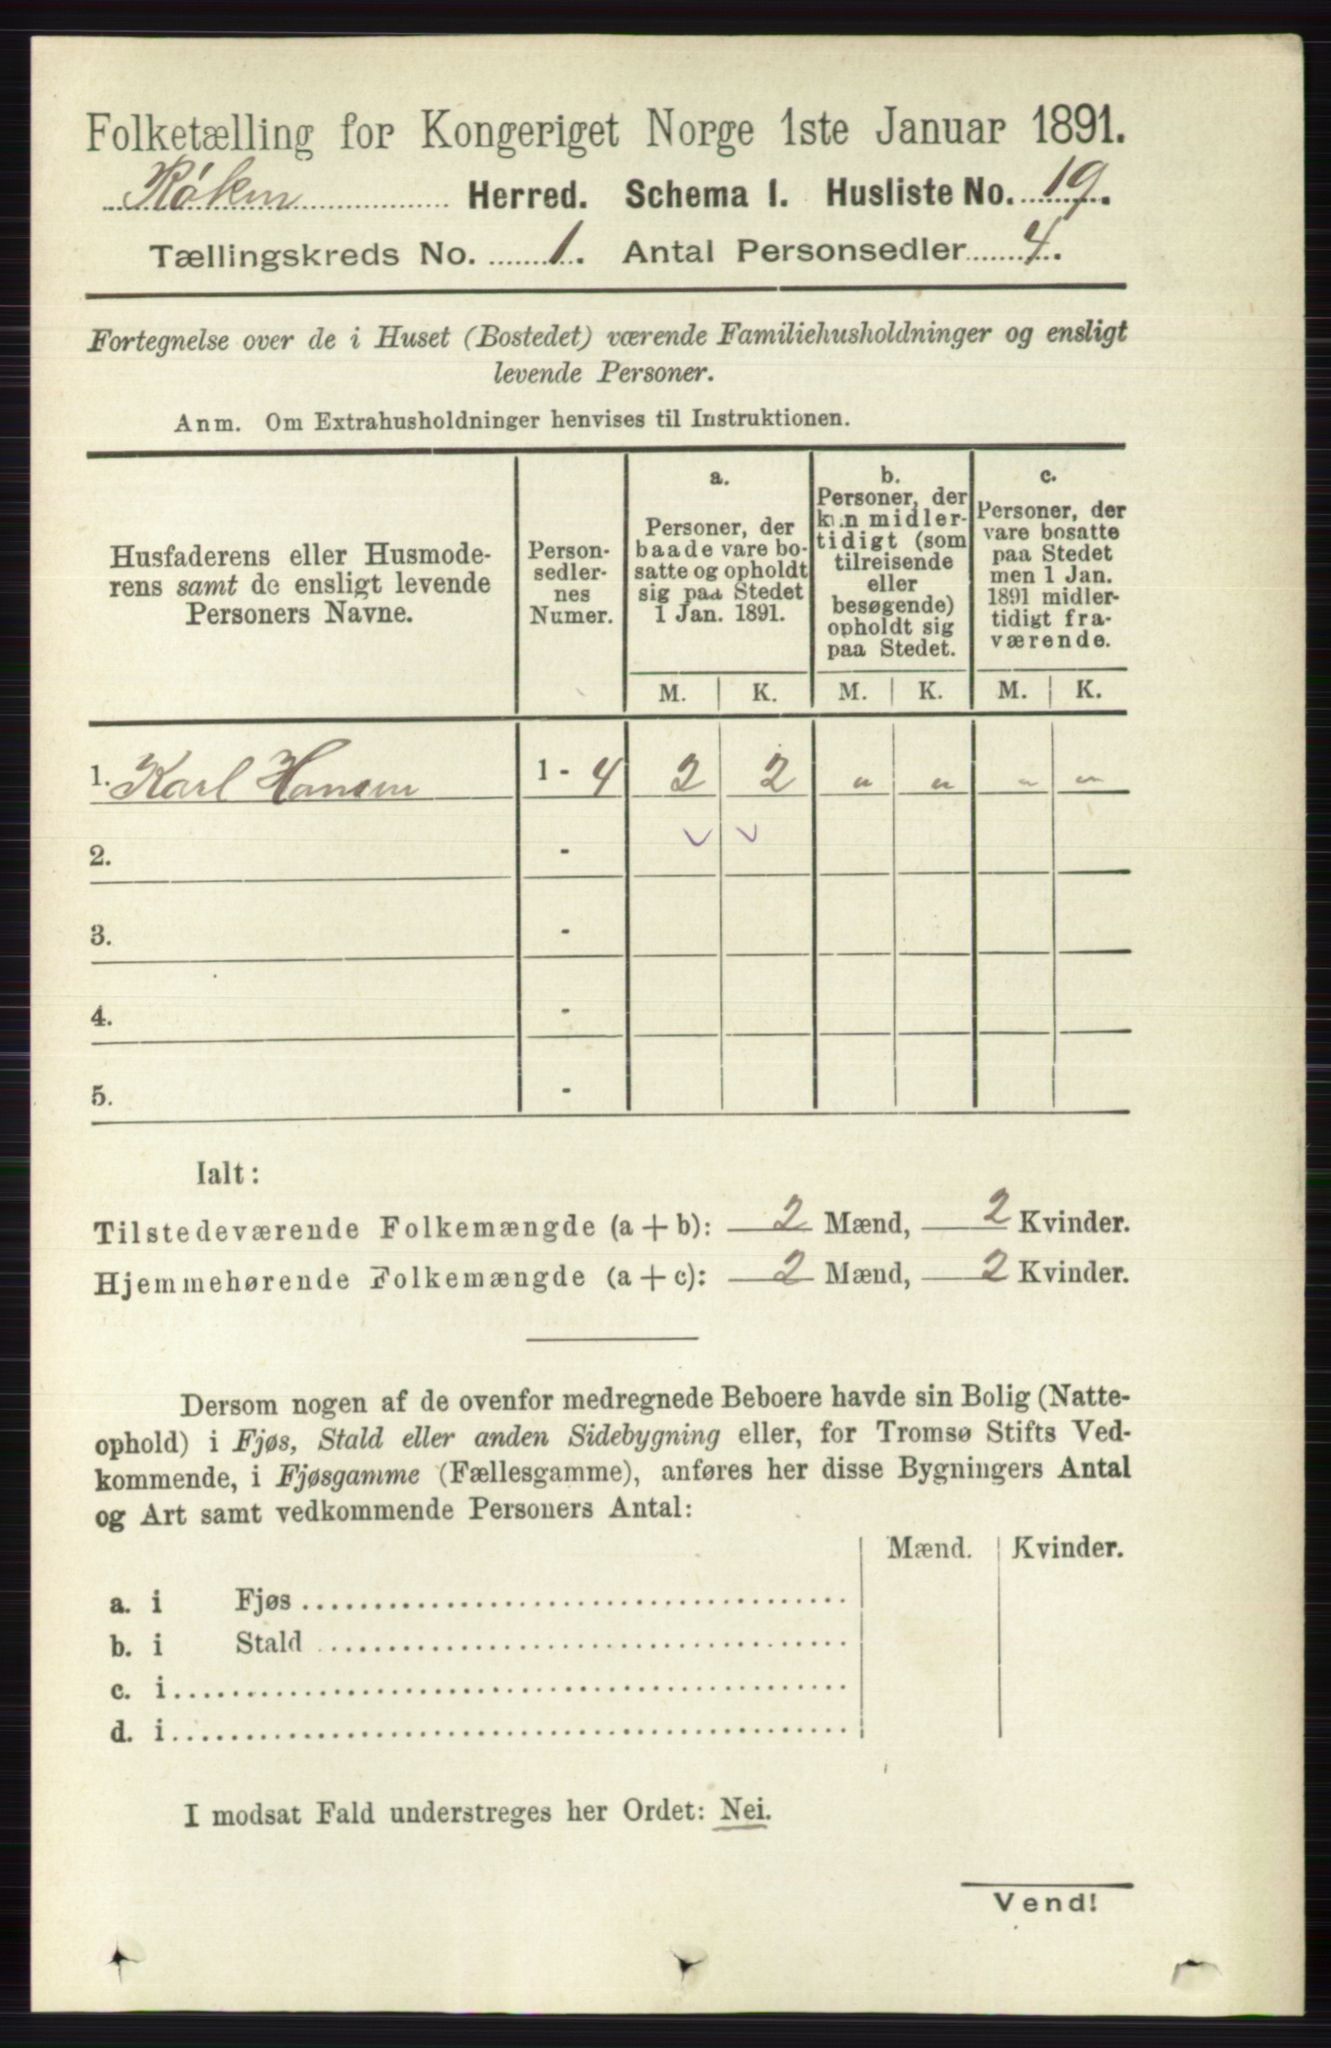 Folketælling for Kongeriget Norge 1ste Januar 1891.
Røken Herred. Schema I. Husliste No. 19.
Tællingskreds No. 1. Antal Personsedler 4.
Fortegnelse over de i Huset (Bostedet) værende Familiehusholdninger og ensligt
levende Personer.
Anm. Om Extrahusholdninger henvises til Instruktionen.
Husfaderens eller Husmode-
rens samt de ensligt levende
Personers Navne.
Person-
sedler-
nes
Numer.
a.
Personer, der
baade vare bo-
satte og opholdt
sig paa Stedet
1 Jan. 1891.
b.
Personer, der
kun midler-
tidigt (som
tilreisende
eller
besøgende)
opholdt sig
paa Stedet.
c.
Personer, der
vare bosatte
paa Stedet
men 1 Jan.
1891 midler-
tidigt fra-
værende.
M. K. M. K. M. K.
1. Karl Hansen 1 - 4 2 2 " " " "
2. -
3. -
4. -
5. -
Ialt:
Tilstedeværende Folkemængde (a + b): 2 Mænd, 2 Kvinder.
Hjemmehørende Folkemængde (a + c): 2 Mænd, 2 Kvinder.
Dersom nogen af de ovenfor medregnede Beboere havde sin Bolig (Natte-
ophold) i Fjøs, Stald eller anden Sidebygning eller, for Tromsø Stifts Ved-
kommende, i Fjøsgamme (Fællesgamme), anføres her disse Bygningers Antal
og Art samt vedkommende Personers Antal:
Mænd. Kvinder.
a. i Fjøs
b. i Stald
c. i
d. i
I modsat Fald understreges her Ordet: Nei.
Vend!